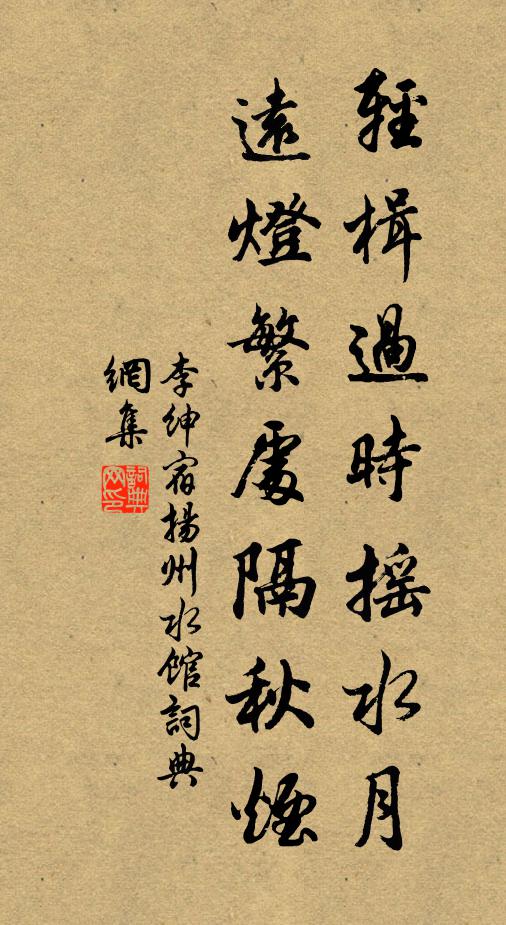 輕楫過時摇水月
遠燈繁處隔秋煙
李紳宿揚州水館詞典
網集
詞典
网印